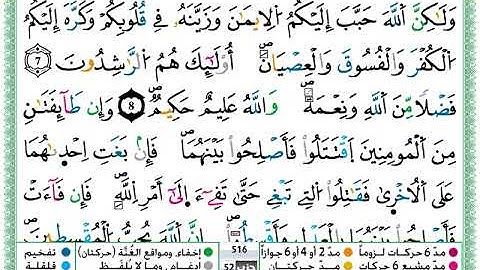 وَلَٰكِنَّ اَ۬للَّهَ حَبَّبَ إِلَيْكُمُ اُ۬لِايمَٰنَ وَزَيَّنَهُۥ فِے قُلُوبِكُمْ وَكَرَّهَ إِلَيْكُمُ
اُ۬لْكُفْرَ وَالْفُسُوقَ وَالْعِصْيَانَۖ أُوْلَٰٓئِكَ هُمُ اُ۬لرَّٰشِدُونَ 7
فَضْلاٗ مِّنَ اَ۬للَّهِ وَنِعْمَةٗۖ وَاللَّهُ عَلِيمٌ حَكِيمٞۖ 8 وَإِن طَآئِفَتَٰنِ
مِنَ اَ۬لْمُومِنِينَ اَ۪قْتَتَلُواْ فَأَصْلِحُواْ بَيْنَهُمَاۖ فَإِنۢ بَغَتِ اِحْد۪يٰهُمَا
عَلَى اَ۬لُاخْر۪يٰ فَقَٰتِلُواْ اُ۬لتِے تَبْغِے حَتَّيٰ تَفِےٓءَ اِلَيٰٓ أَمْرِ اِ۬للَّهِۖ فَإِن فَآءَتْ
فَأَصْلِحُواْ بَيْنَهُمَا بِالْعَدْلِ وَأَقْسِطُوٓاْۖ إِنَّ اَ۬للَّهَ يُحِبُّ اُ۬لْمُقْسِطِينَ
مدّ 6 حركات لزوماً مدّ 2 أو 4 أو 6 جوازاً 516 إخفاء، ومواقع الغُنَّة (حركتان) تفخيم
مدّ مشبع 6 حركات مدّ حركتان 52 إدغام، وما لا يُلفَظ قلقلة